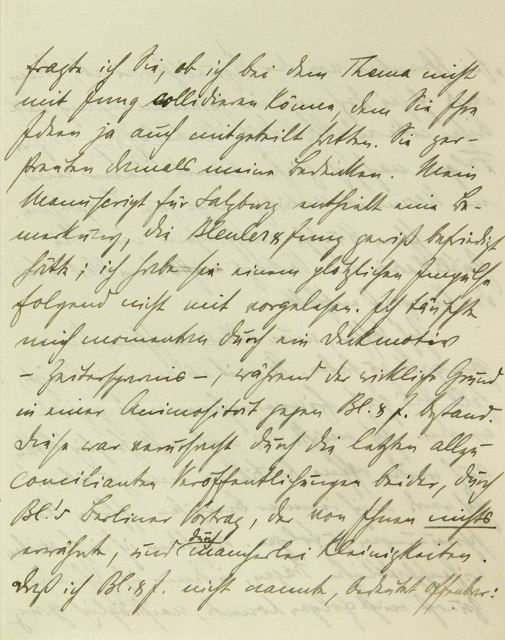 fragte ich Sie, ob ich bei dem Thema nicht
mit Jung collidieren könne, dem Sie Ihre
Ideen ja auch mitgeteilt hatten. Sie zer-
streuten damals meine Bedenken. Mein
Manuscript für Salzburg enthielt eine Be-
merkung, die Bleuler & Jung gewiß befriedigt
hätte; ich habe sie einem plötzlichen Impulse
folgend nicht mit vorgelesen. Ich täuschte
mich momentan durch ein Deckmotiv
– Zeitersparnis –, während der wirkliche Grund
in einer Animosität gegen Bl. & J. bestand.
Diese war verursacht durch die letzten allzu
concilianten Veröffentlichungen beider, durch
Bl.'s Berliner Vortrag, der von Ihnen nichts
erwähnte, und durch mancherlei Kleinigkeiten.
Daß ich Bl. & J. nicht nannte, bedeutet offenbar: